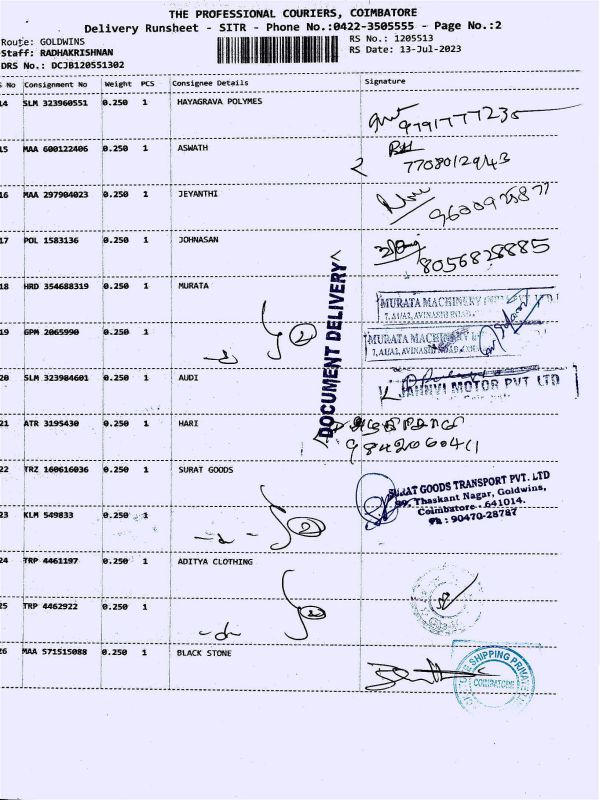 THE PROFESSIONAL COURIERS, COIMBATORE
Delivery Runsheet - SITR - Phone No.:0422-3505555 - Page No.:2
Route: GOLDWINS
RS No.: 1205513
Staff: RADHAKRISHNAN
RS Date: 13-Jul-2023
DRS No.: DCJB120551302
S No Consignment No Weight PCS Consignee Details Signature
14 SLM 323960551 0.250 1 HAYAGRAVA POLYMES
9791777235
15 MAA 600122406 0.250 1 ASWATH
7708012943
16 MAA 297904023 0.250 1 JEYANTHI
9600925877
17 POL 1583136 0.250 1 JOHNASAN
8056828885
DOCUMENT DELIVERY
18 HRD 354688319 0.250 1 MURATA
MURATA MACHINERY
7, AVINASHI ROAD
19 GPM 2065990 0.250 1
2
MURATA MACHINERY
7, AVINASHI ROAD
20 SLM 323984601 0.250 1 AUDI
JAHNVI MOTOR PVT LTD
21 ATR 3195430 0.250 1 HARI
9842060411
22 TRZ 160616036 0.250 1 SURAT GOODS
SURAT GOODS TRANSPORT PVT. LTD
99, Thaskant Nagar, Goldwins,
Coimbatore - 641014.
Ph : 90470-28787
23 KLM 549833 0.250 1
2
24 TRP 4461197 0.250 1 ADITYA CLOTHING
25 TRP 4462922 0.250 1
2
26 MAA 571515088 0.250 1 BLACK STONE
SHIPPING PRIVATE
COIMBATORE